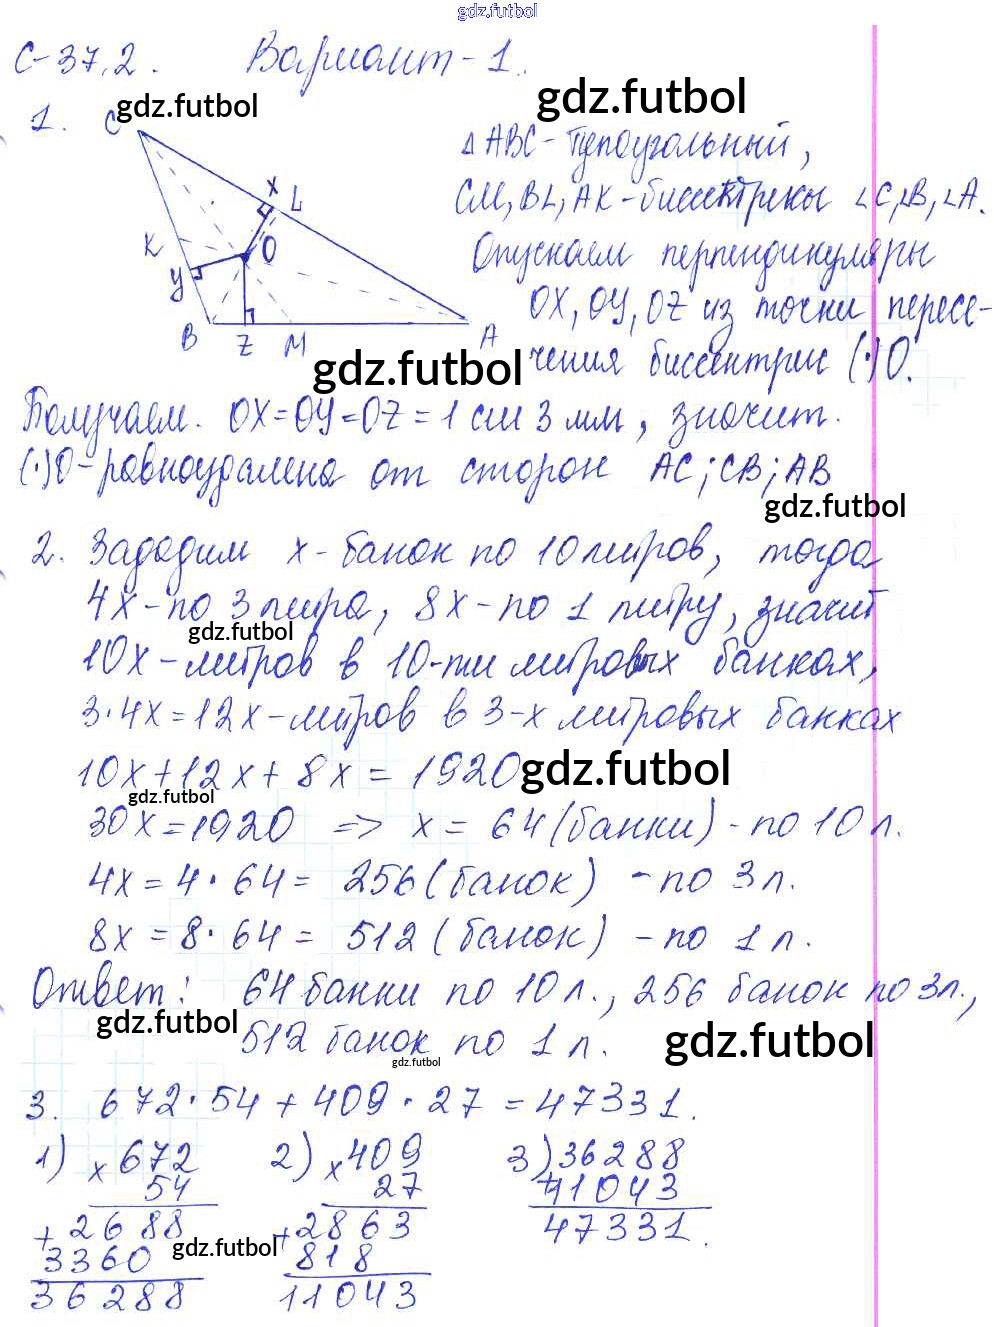 gdz.futbol
С-37.2. Вариант-1.
gdz.futbol
gdz.futbol
1. C
X L
K
O
У
B Z M A
Δ ABC - тупоугольный,
CM, BL, AK - биссектрисы ∠C, ∠B, ∠A.
Опускаем перпендикуляры
OX, OY, OZ из точки пересе-
чения биссектрис (·)O.
gdz.futbol
Получаем. OX=OY=OZ=1 см 3 мм, значит.
(·)O-равноудалена от сторон AC; CB; AB
gdz.futbol
2. Зададим x-банок по 10 литров, тогда
4x-по 3 литра, 8x-по 1 литру, значит
gdz.futbol
10x-литров в 10-ти литровых банках,
3·4x=12x-литров в 3-х литровых банках
10x+12x+8x=1920
gdz.futbol
gdz.futbol
30x=1920 => x= 64 (банки) - по 10 л.
4x=4·64= 256 (банок) - по 3 л.
8x=8·64= 512 (банок) - по 1 л.
Ответ: 64 банки по 10 л., 256 банок по 3 л.,
gdz.futbol
512 банок по 1 л.
gdz.futbol
gdz.futbol
3. 672·54+409·27=47331.
1) ×672 2) ×409 3) 36288
54 27 +11043
+2688 +2863 47331.
3360 818
gdz.futbol
36288 11043